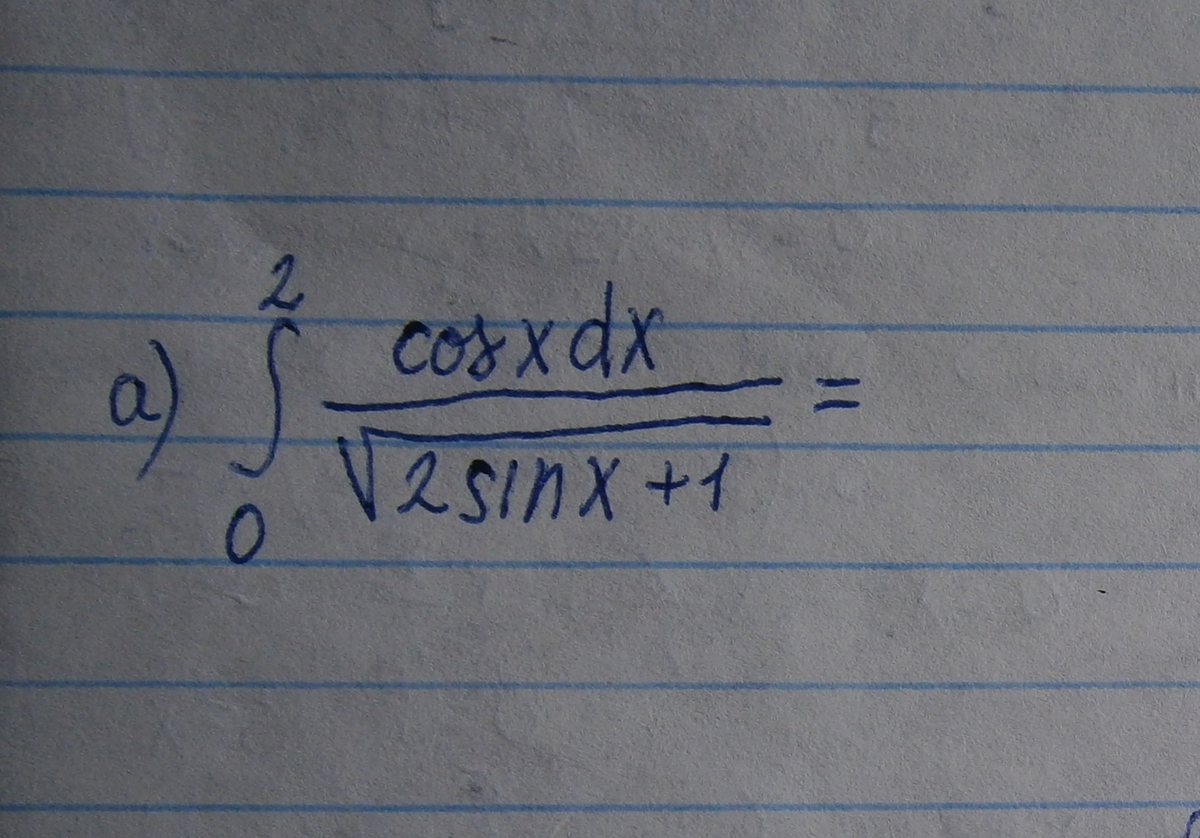 a) ∫₀² cosx dx / √(2sinx+1) =